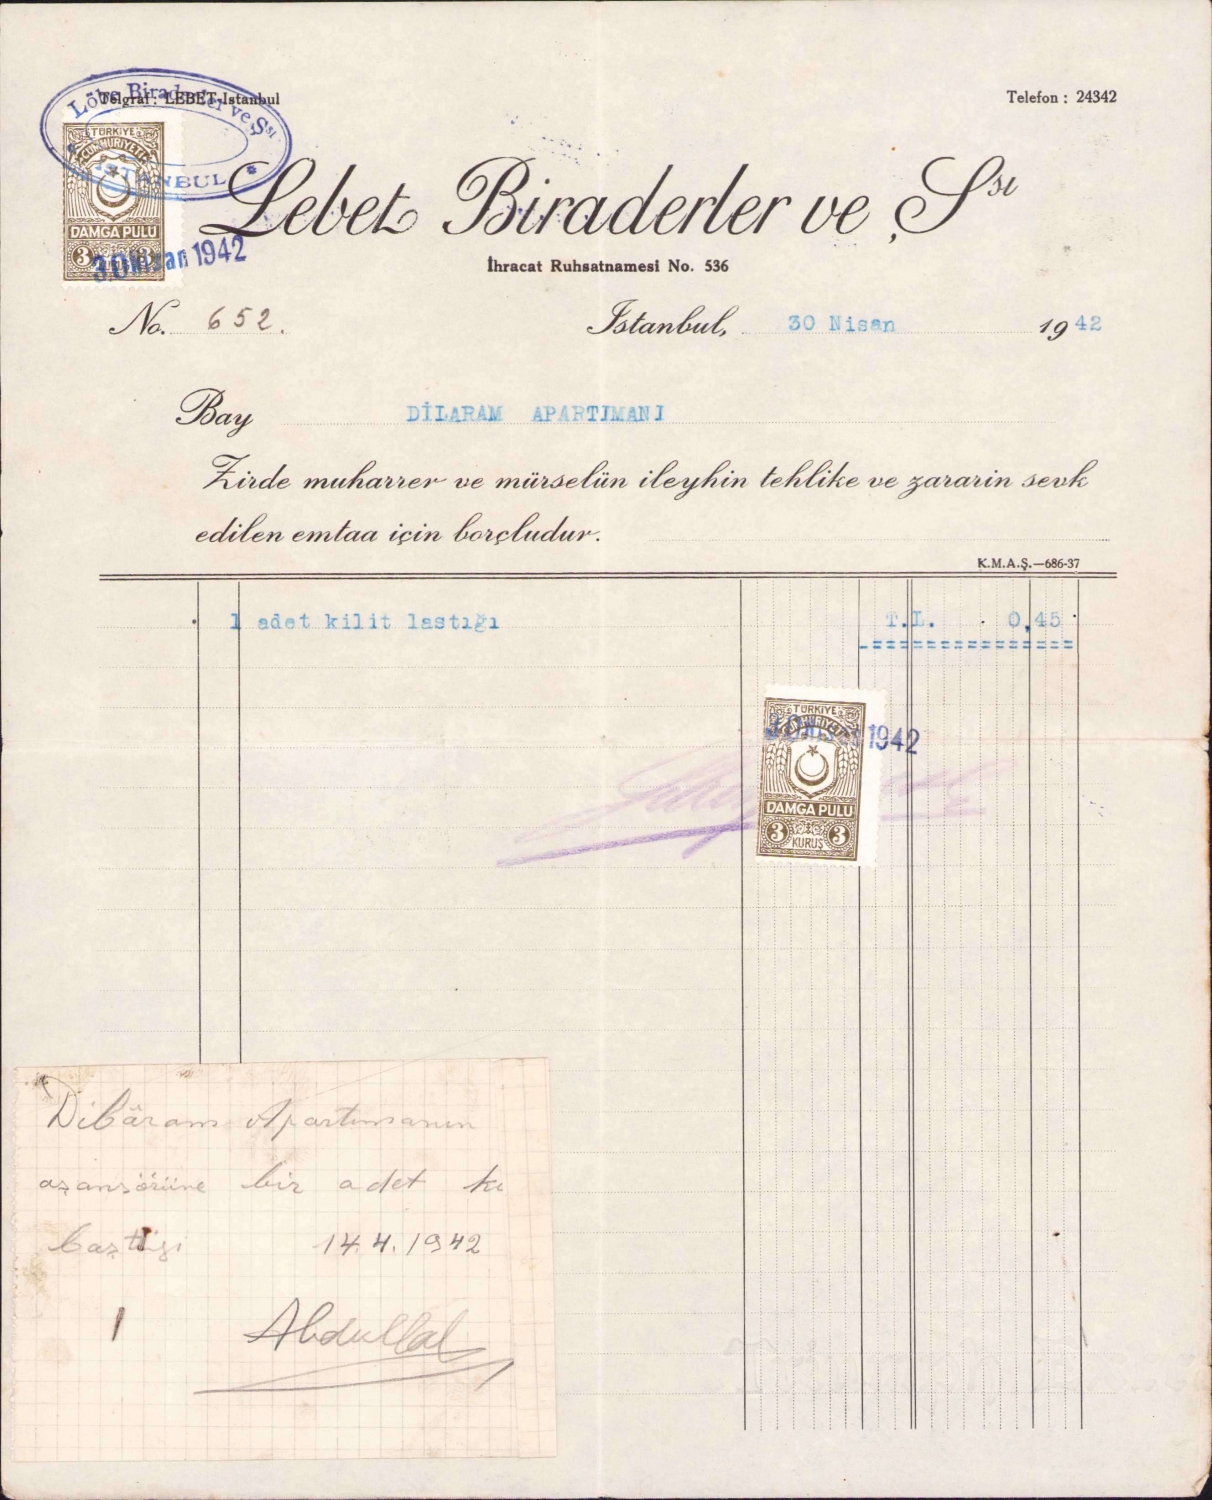 Telgraf: LEBET-Istanbul
Telefon : 24342
Biraderler ve Şsı
ISTANBUL
TÜRKİYE
CUMHURİYETİ
DAMGA PULU
3 3
30 Nisan 1942
Lebet Biraderler ve Şsı
İhracat Ruhsatnamesi No. 536
No. 652.
Istanbul, 30 Nisan 1942
Bay DİLARAM APARTIMANI
Zirde muharrer ve mürselün ileyhin tehlike ve zararin sevk
edilen emtaa için borçludur.
K.M.A.Ş.—686-37
1 adet kilit lastığı T.L. 0,45
TÜRKİYE
CUMHURİYETİ
1942
DAMGA PULU
3 KURUŞ 3
Dilâram Apartımanın
asansörüne bir adet ki
lastıği 14.4.1942
1 Abdullah